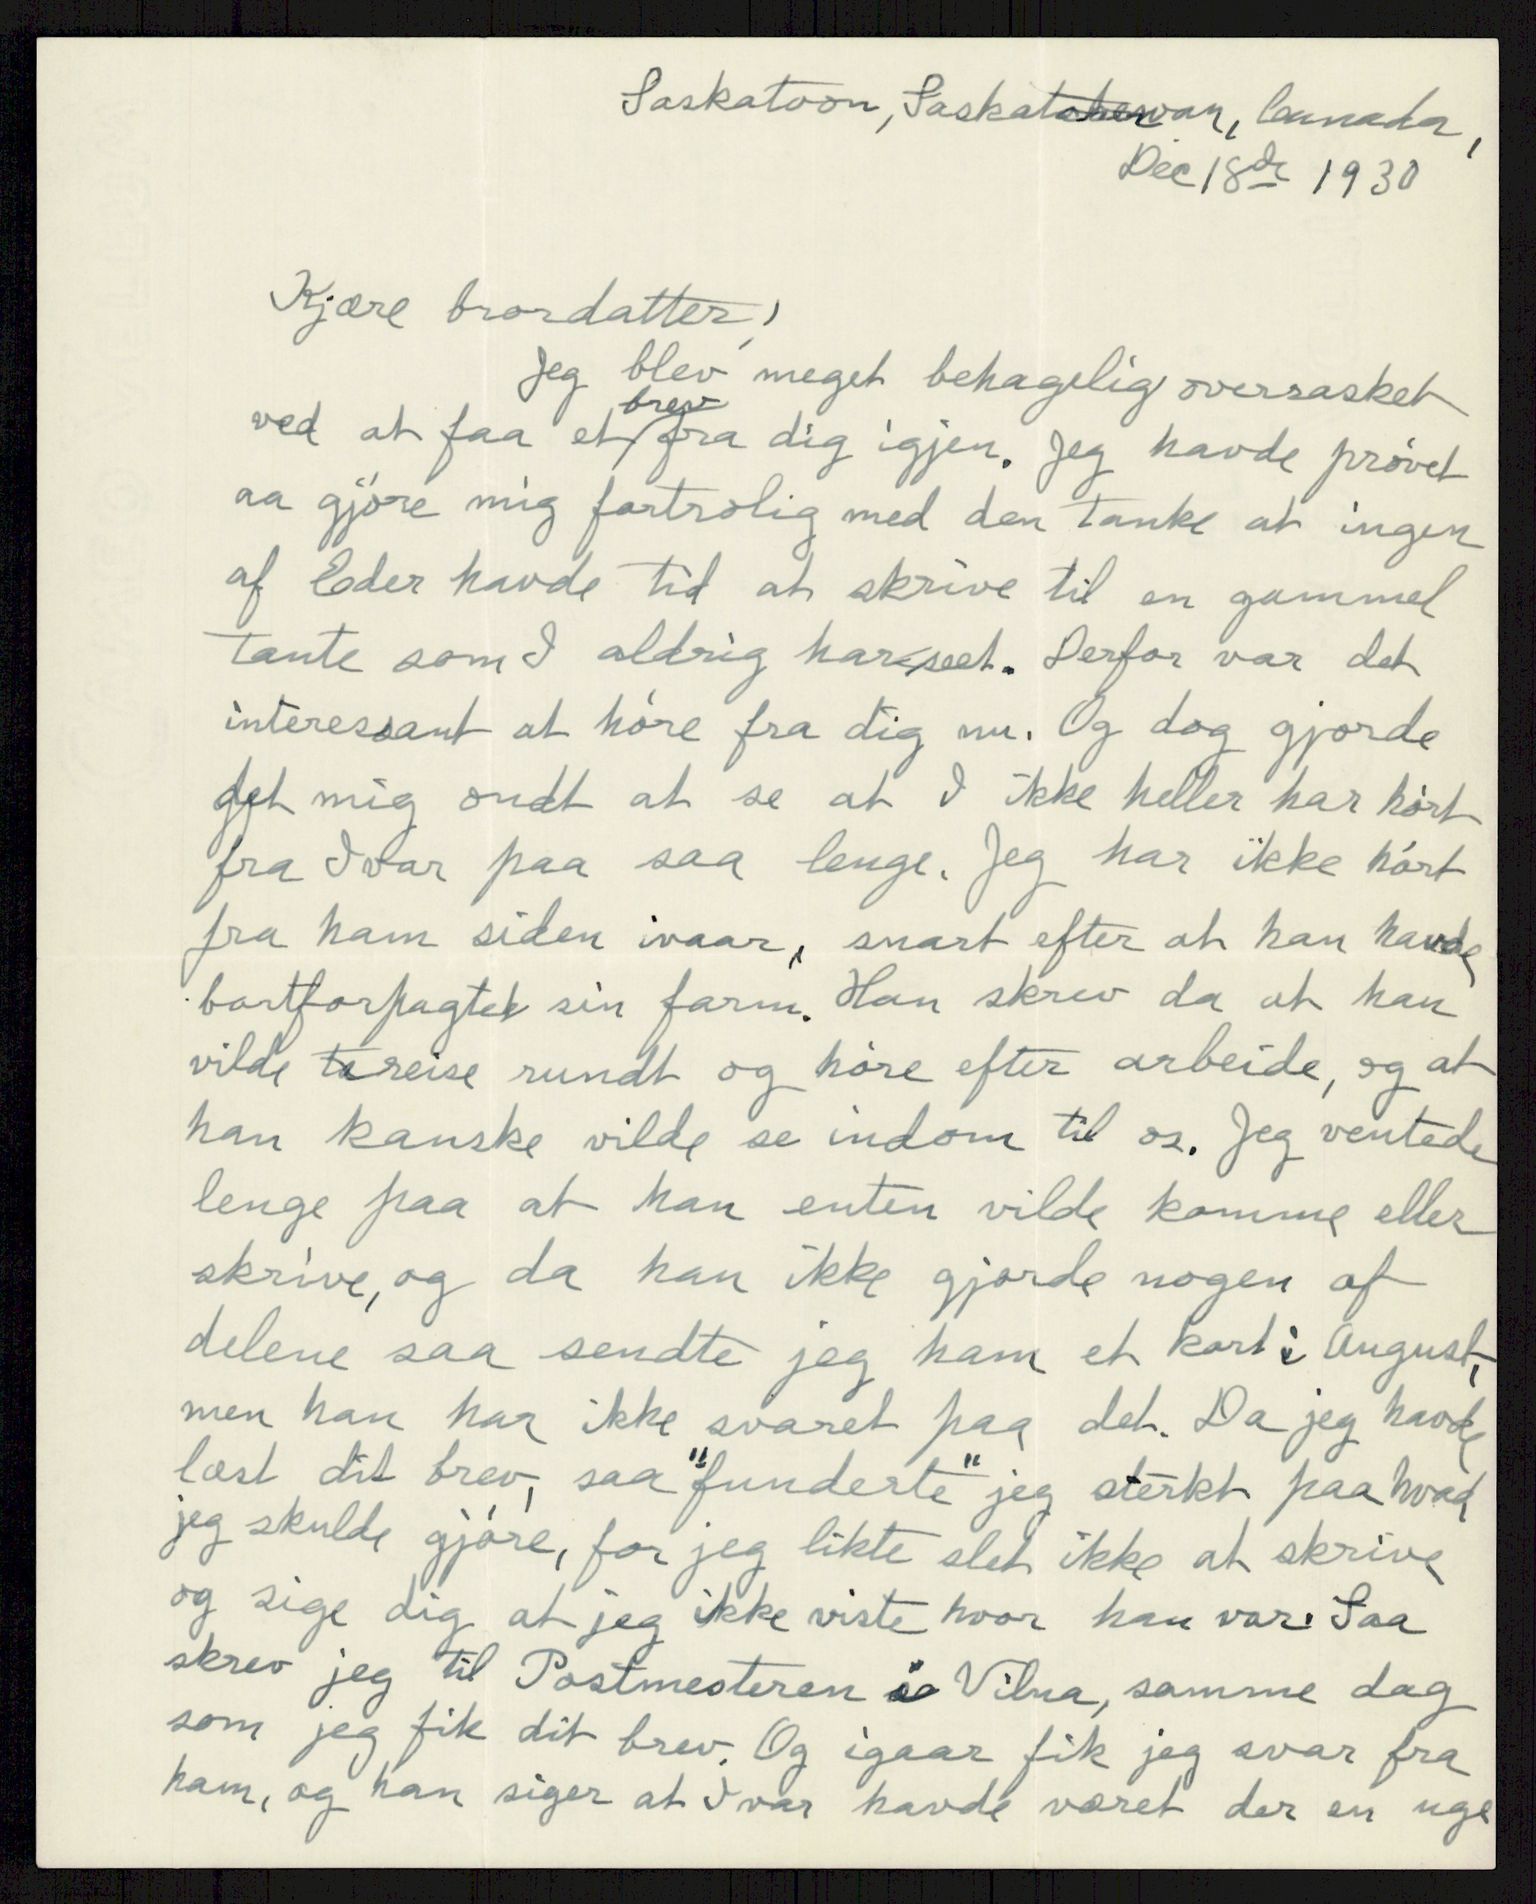 Saskatoon, Saskatchewan, Canada,
Dec 18de 1930
Kjære brordatter,
Jeg blev meget behagelig overrasket
ved at faa et brev fra dig igjen. Jeg havde prøvet
aa gjöre mig fortrolig med den tanke at ingen
af Eder havde tid at skrive til en gammel
tante som I aldrig har seet. Derfor var det
interessant at höre fra dig nu. Og dog gjorde
det mig ondt at se at I ikke heller har hört
fra Ivar paa saa lenge. Jeg har ikke hört
fra ham siden ivaar, snart efter at han havde
bortforpagtet sin farm. Han skrev da at han
vilde reise rundt og höre efter arbeide, og at
han kanske vilde se indom til os. Jeg ventede
lenge paa at han enten vilde komme eller
skrive, og da han ikke gjorde nogen af
delene saa sendte jeg ham et kort i August,
men han har ikke svaret paa det. Da jeg havde
læst dit brev, saa "funderte" jeg sterkt paa hvad
jeg skulde gjöre, for jeg likte slet ikke at skrive
og sige dig at jeg ikke viste hvor han var. Saa
skrev jeg til Postmesteren i Vilna, samme dag
som jeg fik dit brev. Og igaar fik jeg svar fra
ham, og han siger at Ivar havde været der en uge